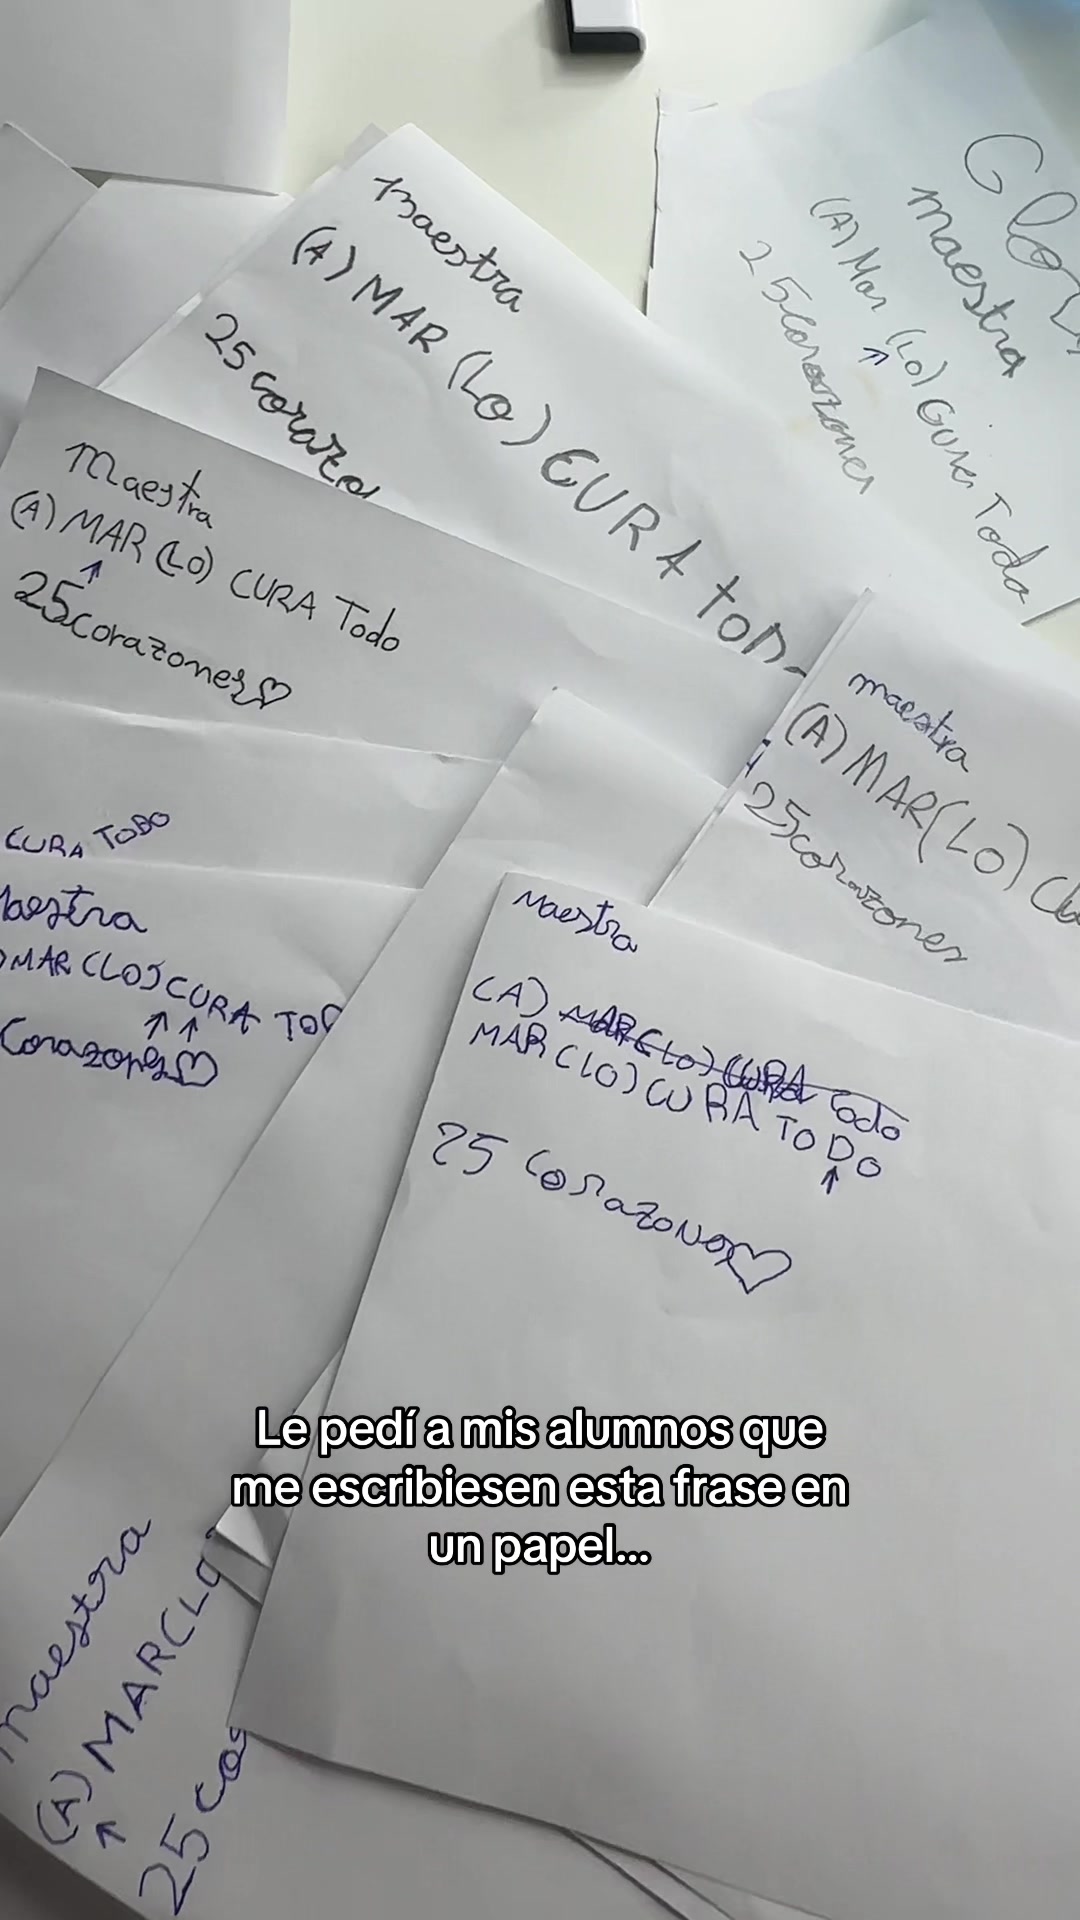 maestra
(A) MAR (LO) CURA TOD
25 coraz
maestra
(A) Mar (Lo) Cura Todo
25 corazones
Maestra
(A) MAR (LO) CURA Todo
25 corazones
maestra
(A) MAR (LO)
25 corazones
CURA TODO
Maestra
MAR (LO) CURA TOD
Corazones
Maestra
(A) MAR (LO) CURA Todo
MAR (LO) CURA TODO
25 corazones
Le pedí a mis alumnos que
me escribiesen esta frase en
un papel...
maestra
(A) MAR (LO
25 co